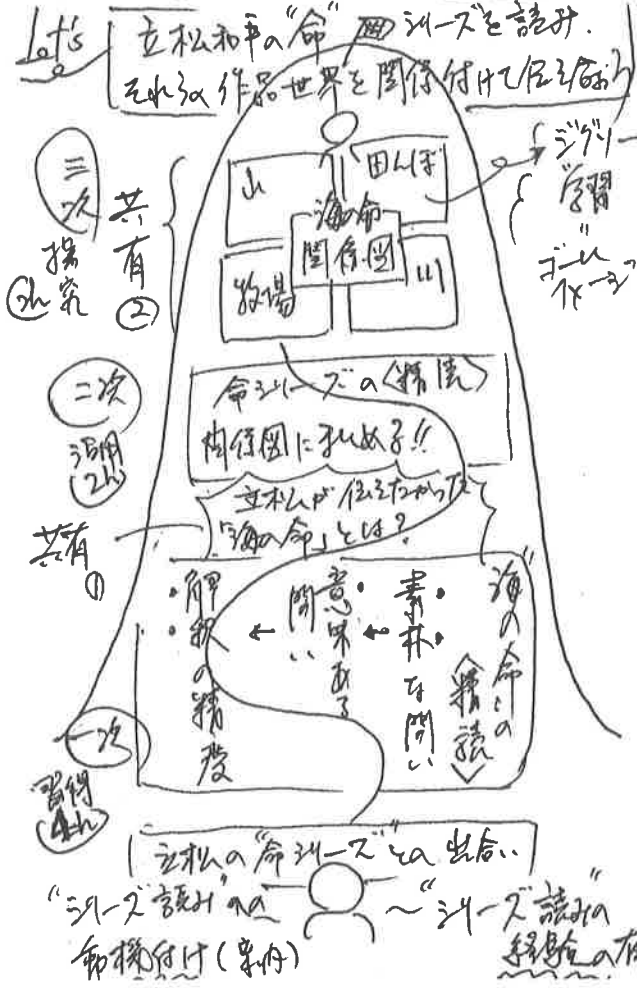 Let's
立松和平の"命" シリーズを読み、
それらの作品世界を関係付けて伝え合おう
山
田んぼ
海の命
関係図
牧場
川
ジグソー
学習
"
ゴール
イメージ
三次
探究
2h
共有
②
二次
活用
2h
命シリーズの〈精読〉
関係図にまとめる!!
立松が伝えたかった
「海の命」とは?
共有
①
"海の命"の
〈精読〉
・素朴な問い
←
・意味ある
問い
←
・解釈の精度
一次
習得
4h
立松の"命シリーズ"との出合い
"シリーズ読み"への
動機付け
〜"シリーズ読み"の
経験の有